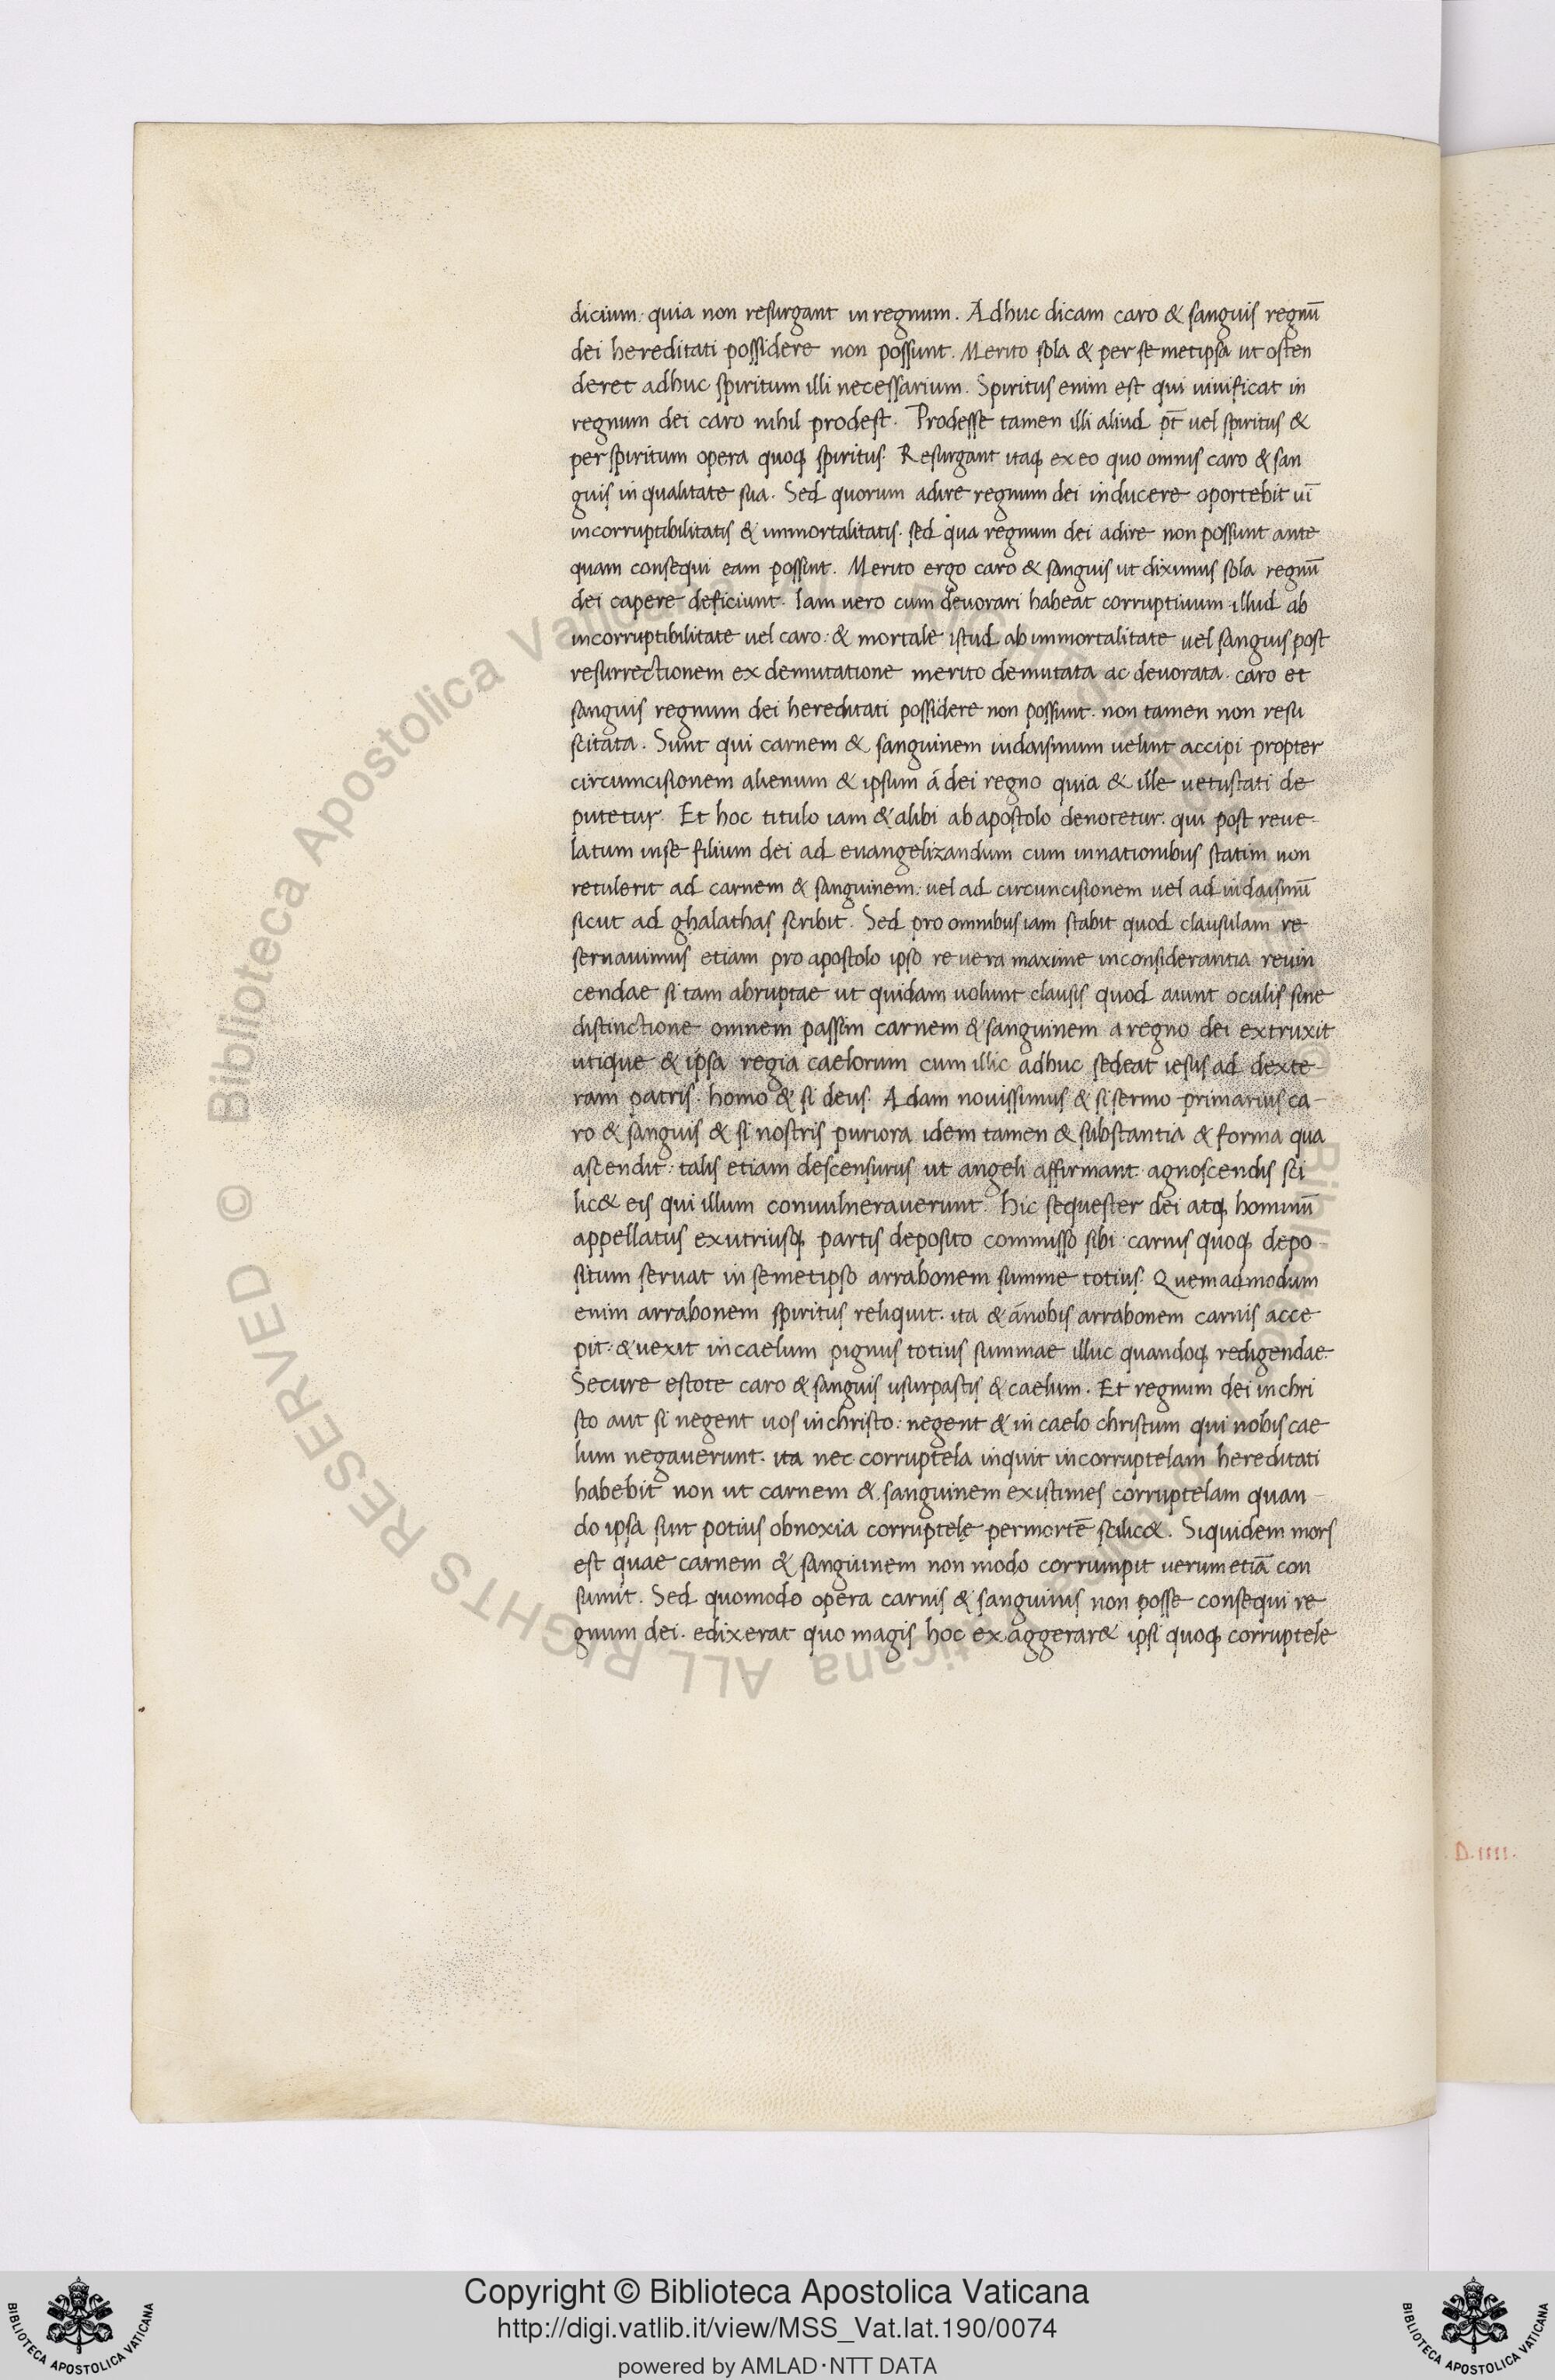 dicium: quia non resurgant in regnum. Adhuc dicam caro & sanguis regnū
dei hereditati possidere non possunt. Merito sola & per semetipsa ut osten
deret adhuc spiritum illi necessarium. Spiritus enim est qui uiuificat in
regnum dei caro nihil prodest. Prodesse tamen illi aliud pt̄ uel spiritus &
per spiritum opera quoq; spiritus. Resurgant itaq; ex eo quo omnis caro & san
guis in qualitate sua. Sed quorum adire regnum dei inducere oportebit ui̅
incorruptibilitatis & immortalitatis. sed qua regnum dei adire non possunt ante
quam consequi eam possint. Merito ergo caro & sanguis ut diximus sola regnū
dei capere deficiunt. Iam uero cum deuorari habeat corruptiuum illud ab
incorruptibilitate uel caro: & mortale istud ab immortalitate uel sanguis post
resurrectionem ex demutatione merito demutata ac deuorata. caro et
sanguis regnum dei hereditati possidere non possunt. non tamen non resu
scitata. Sunt qui carnem & sanguinem iudaismum uelint accipi propter
circumcisionem alienum & ipsum á dei regno quia & ille uetustati de
putetur. Et hoc titulo iam & alibi ab apostolo denotetur. qui post reue-
latum in se filium dei ad euangelizandum cum in nationibus statim non
retulerit ad carnem & sanguinem: uel ad circuncisionem uel ad iudaismū
sicut ad ghalathas scribit. Sed pro omnibus iam stabit quod clausulam re
seruauimus etiam pro apostolo ipso re uera maxime inconsiderantia reuin
cendae si tam abruptae ut quidam uolunt clausis quod aiunt oculis sine
distinctione omnem passim carnem & sanguinem a regno dei extruxit
utique & ipsa regia caelorum cum illic adhuc sedeat iesus ad dexte-
ram patris. homo & si deus. Adam nouissimus & si sermo primarius ca-
ro & sanguis & si nostris puriora idem tamen & substantia & forma qua
ascendit: talis etiam descensurus ut angeli affirmant. agnoscendis sci
lic& eis qui illum conuulnerauerunt. Hic sequester dei atq; hominū
appellatus ex utriusq; partis deposito commisso sibi carnis quoq; depo-
situm seruat in semetipso arrabonem summe totius. Quemadmodum
enim arrabonem spiritus reliquit. ita & á nobis arrabonem carnis acce-
pit: & uexit in caelum pignus totius summae illuc quandoq; redigendae.
Secure estote caro & sanguis usurpastis & caelum. Et regnum dei in chri
sto aut si negent uos in christo: negent & in caelo christum qui nobis cae-
lum negauerunt. ita nec corruptela inquit incorruptelam hereditati
habebit non ut carnem & sanguinem existimes corruptelam quan-
do ipsa sunt potius obnoxia corruptelę per mortē scilic&. Siquidem mors
est quae carnem & sanguinem non modo corrumpit uerum etiā con
sumit. Sed quomodo opera carnis & sanguinis non posse consequi re-
gnum dei. edixerat quo magis hoc exaggerar& ipsi quoq; corruptele
D.IIII.
© Biblioteca Apostolica Vaticana ALL RIGHTS RESERVED
Copyright © Biblioteca Apostolica Vaticana
http://digi.vatlib.it/view/MSS_Vat.lat.190/0074
powered by AMLAD·NTT DATA
BIBLIOTECA APOSTOLICA VATICANA
BIBLIOTECA APOSTOLICA VATICANA